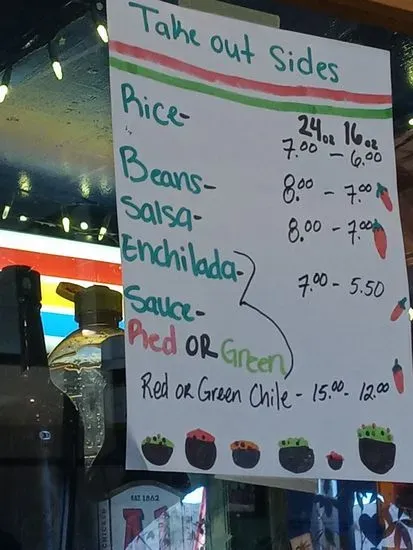 Take out Sides
24oz 16oz
Rice- 7.00 - 6.00
Beans- 8.00 - 7.00
Salsa- 8.00 - 7.00
Enchilada-
Sauce- 7.00 - 5.50
Red OR Green
Red OR Green Chile - 15.00 - 12.00
EST. 1862